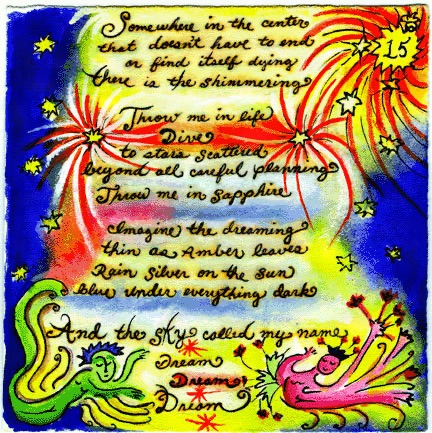 15
Somewhere in the center
that doesn't have to end
or find itself dying
there is the shimmering
Throw me in life
Dive
to stars scattered
beyond all careful planning
Throw me in sapphire
Imagine the dreaming
thin as Amber leaves
Rain silver on the sun
blue under everything dark
And the sky called my name
Dream
Dream
Dream